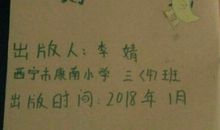 出版人：李婧
西宁市康南小学 三（4）班
出版时间：2018年1月